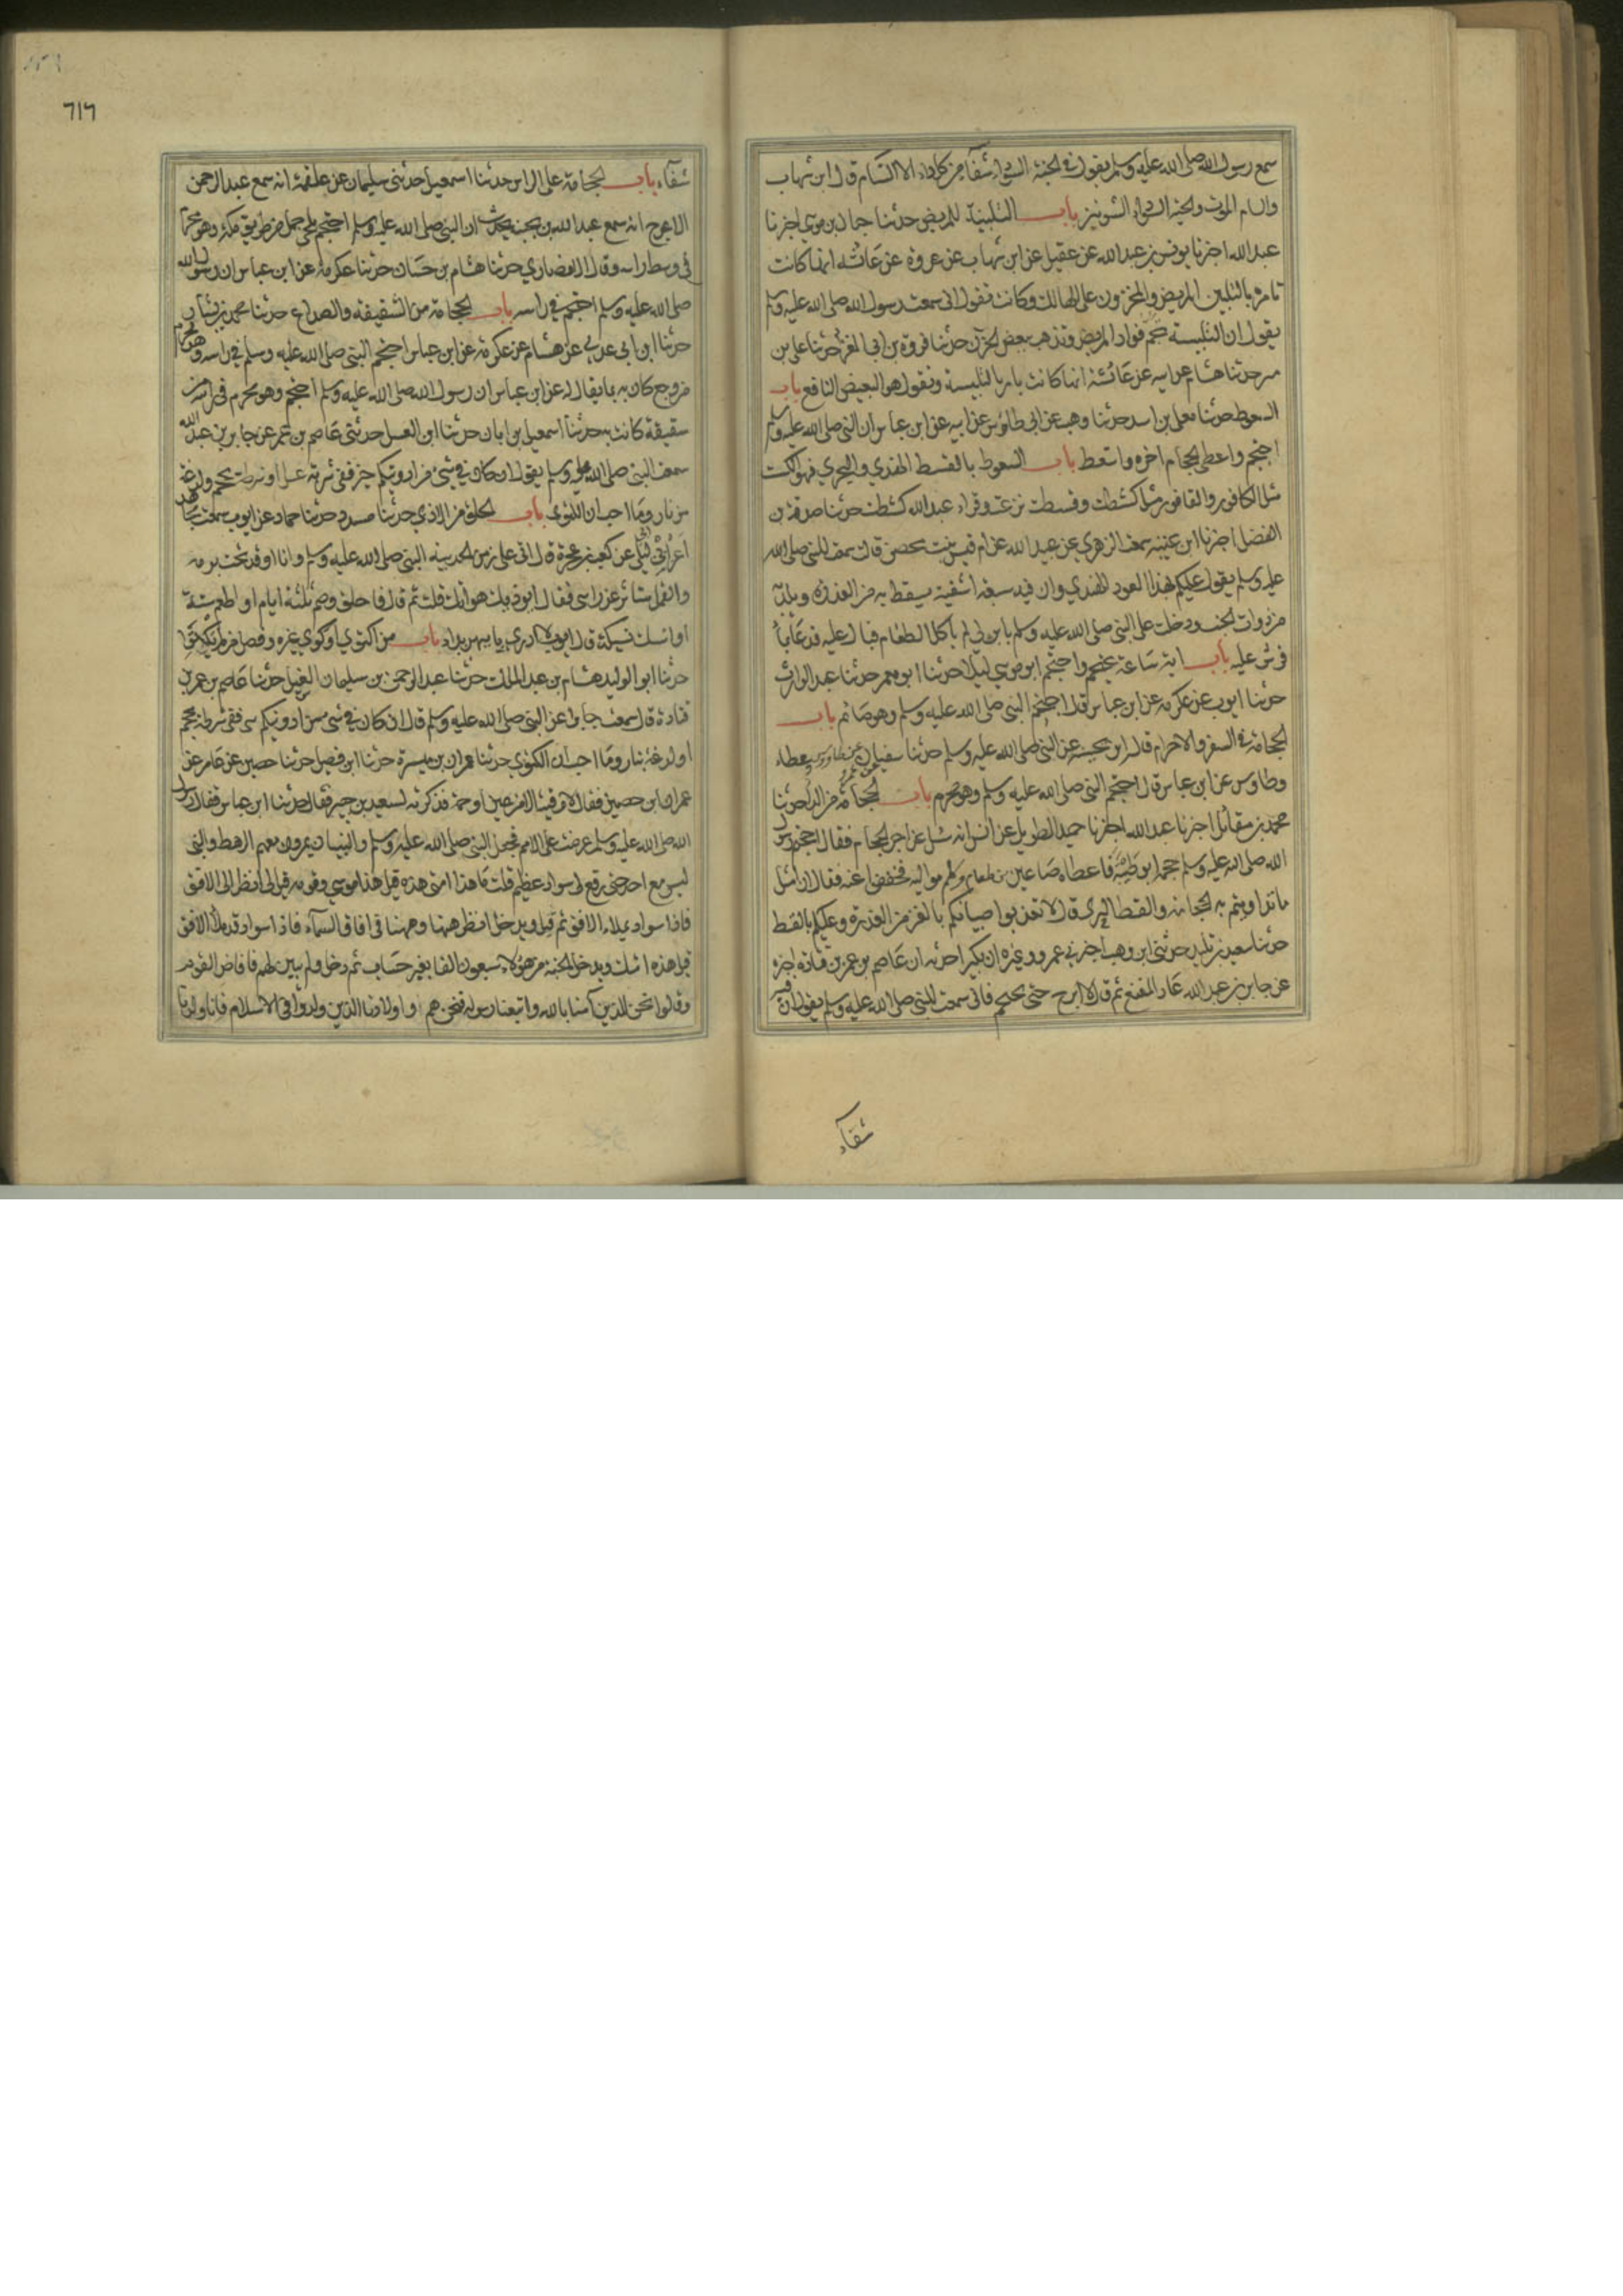 سمع رسول الله صلى الله عليه وسلم يقول في الحبة السوداء شفآء من كل داء الا السام قال ابن شهاب
والسام الموت والحبة السوداء الشونيز باب التلبينة للمريض حدثنا حبان بن موسى اخبرنا
عبد الله اخبرنا يونس بن عبد الله عن عقيل عن ابن شهاب عن عروة عن عائشه انها كانت
تامر بالتلبين للمريض والمحزون على الهالك وكانت تقول انى سمعت رسول الله صلى الله عليه وسلم
يقول ان التلبينة تجم فواد المريض وتذهب ببعض الحزن حدثنا فروة بن ابى المغرا حدثنا على بن
مسهر حدثنا هشام عن ابيه عن عائشة انها كانت تامر بالتلبينة وتقول هو البغيض النافع باب
السعوط حدثنا معلى بن اسد حدثنا وهيب عن ابن طاوس عن ابيه عن ابن عباس ان النبي صلى الله عليه وسلم
احتجم واعطى الحجام اجره واستعط باب السعوط بالقسط الهندي والبحري فهو الكست
مثل الكافور والقافور مثل كشطت وقسطت نزعت وقراء عبد الله كشطت حدثنا صدقة بن
الفضل اخبرنا ابن عيينه سمعت الزهري عن عبيد الله عن ام قيس بنت محصن قالت سمعت النبي صلى الله
عليه وسلم يقول عليكم بهذا العود الهندي وان فيه سبعة اشفية يسقط به من العذرة ويلد به
من ذوات الجنب ودخلت على النبي صلى الله عليه وسلم بابن لي لم ياكل الطعام فبال عليه فدعا بما
فرش عليه باب اية ساعة يحتجم واحتجم ابو موسي ليلا حدثنا ابو معمر حدثنا عبد الوارث
حدثنا ايوب عن عكرمه عن ابن عباس قال احتجم النبي صلى الله عليه وسلم وهو صائم باب
الحجامة في السفر والاحرام قاله ابن بحينه عن النبي صلى الله عليه وسلم حدثنا سفيان عن عمرو عن طاوس عطاء
وطاوس عن ابن عباس قال احتجم النبي صلى الله عليه وسلم وهو محرم باب الحجامة من الداء حدثنا
محمد بن مقاتل اخبرنا عبد الله اخبرنا حميد الطويل عن انس انه سئل عن اجر الحجام فقال احتجم رسول
الله صلى الله عليه وسلم حجمه ابو طيبة فاعطاه صاعين من طعام وكلم مواليه فخففوا عنه فقال ان امثل
ما تداويتم به الحجامة والقسط البحرى قال لا تعذبوا صبيانكم بالغمز من العذرة وعليكم بالقسط
حدثنا سعيد بن تليد حدثنى ابن وهب اخبرني عمرو وغيره ان بكيرا حدثه ان عاصم بن عمر بن قتادة اخبره
عن جابر بن عبد الله عاد المقنع ثم قال لا ابرح حتى يحتجم فانى سمعت النبي صلى الله عليه وسلم يقول ان فيه
شفآء
٦١٦
شفآء باب الحجامة على الراس حدثنا اسمعيل حدثنى سليمان عن علقمة انه سمع عبد الرحمن
الاعرج انه سمع عبد الله بن بحينه يحدث ان النبي صلى الله عليه وسلم احتجم بلحي جمل من طريق مكة وهو محرم
في وسط راسه وقال الانصاري حدثنا هشام بن حسان حدثنا عكرمة عن ابن عباس ان رسول الله
صلى الله عليه وسلم احتجم في راسه باب الحجامة من الشقيقة والصداع حدثنا محمد بن بشار
حدثنا ابن ابى عدي عن هشام عن عكرمة عن ابن عباس احتجم النبي صلى الله عليه وسلم في راسه وهو محرم
من وجع كان به بما يقال له عن ابن عباس ان رسول الله صلى الله عليه وسلم احتجم وهو محرم فى راسه من
شقيقة كانت به حدثنا اسمعيل بن ابان حدثنا ابن الغسيل حدثنى عاصم بن عمر عن جابر بن عبد الله
سمعت النبي صلى الله عليه وسلم يقول ان كان في شئ من ادويتكم خير ففى شربة عسل او شرطة محجم او لذعة
من نار وما احب ان اكتوى باب الحلق من الاذي حدثنا مسدد حدثنا حماد عن ايوب سمعت مجاهد
عن ابن ابى ليلى عن كعب بن عجرة قال اتى على زمن الحديبيه النبي صلى الله عليه وسلم وانا اوقد تحت برمه
والقمل يتناثر عن راسى فقال ايوذيك هوامك قلت نعم قال فاحلق وصم ثلثة ايام او اطعم ستة
او انسك نسيكة قال ايوب لا ادري بايتهن بداء باب من اكتوي او كوي غيره وفضل من لم يكتو
حدثنا ابو الوليد هشام بن عبد الملك حدثنا عبد الرحمن بن سليمان الغسيل حدثنا عاصم بن عمر بن
قتادة قال سمعت جابرا عن النبي صلى الله عليه وسلم قال ان كان في شئ من ادويتكم شى ففى شرطة محجم
او لذعة بنار وما احب ان اكتوي حدثنا عمران بن ميسرة حدثنا ابن فضيل حدثنا حصين عن عامر عن
عمران ابن حصين فقال لا رقية الا من عين او حمة فذكرته لسعيد بن جبير فقال حدثنا ابن عباس فقال رسول
الله صلى الله عليه وسلم عرضت على الامم فجعل النبي صلى الله عليه وسلم والنبيان يمرون معهم الرهط والنبي
ليس مع احد حتى رفع لى سواد عظيم قلت ما هذا امتى هذه قيل هذا موسي وقومه قيل لى انظر الى الافق
فاذا سواد يملاء الافق ثم قيل ويدخل انظر ههنا وههنا في افاق السمآء فاذا سواد قد ملاء الافق
قيل هذه امتك ويدخل الجنة من هؤلاء سبعون الفا بغير حساب ثم دخل ولم يبين لهم فافاض القوم
وقالوا نحن الذين آمنا بالله واتبعنا رسوله فنحن هم او اولادنا الذين ولدوا في الاسلام فانا ولدنا